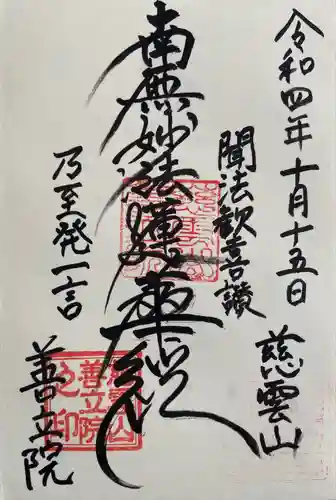 令和四年十月十五日
慈雲山
聞法歓喜讃
南無妙法蓮華経
乃至発一言
善立院
善立院
之印